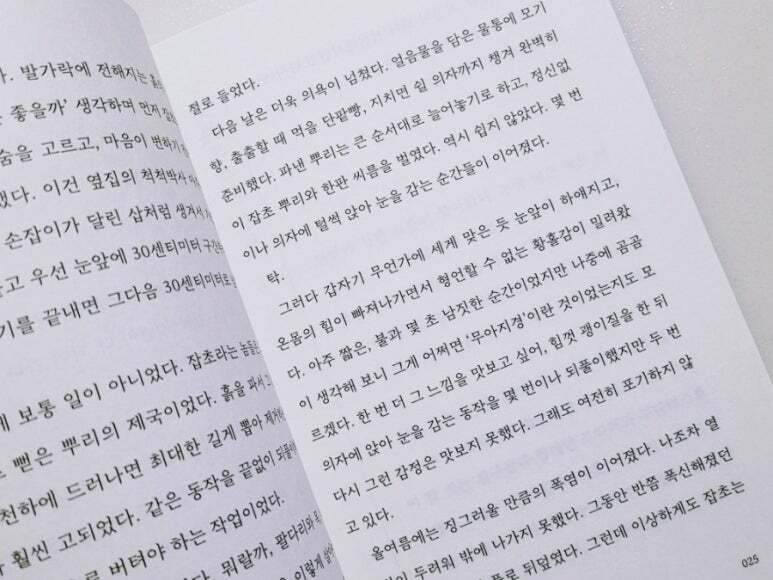 . 발가락에 전해지는
좋을까’ 생각하며 먼저
숨을 고르고, 마음이 변하기
했다. 이건 옆집의 척척박사
손잡이가 달린 삽처럼 생겨서
고 우선 눈앞에 30센티미터
기를 끝내면 그다음 30센티미터로
보통 일이 아니었다. 잡초라는 놈들은
뻗은 뿌리의 제국이었다. 흙을 파서
천하에 드러나면 최대한 길게 뽑아
훨씬 고되었다. 같은 동작을 끝없이
로 버텨야 하는 작업이었다.
. 뭐랄까, 팔다리와
절로 들었다.
다음 날은 더욱 의욕이 넘쳤다. 얼음물을 담은 물통에 모기
향, 출출할 때 먹을 단팥빵, 지치면 쉴 의자까지 챙겨 완벽히
준비했다. 파낸 뿌리는 큰 순서대로 늘어놓기로 하고, 정신없
이 잡초 뿌리와 한판 씨름을 벌였다. 역시 쉽지 않았다. 몇 번
이나 의자에 털썩 앉아 눈을 감는 순간들이 이어졌다.
탁.
그러다 갑자기 무언가에 세게 맞은 듯 눈앞이 하얘지고,
온몸의 힘이 빠져나가면서 형언할 수 없는 황홀감이 밀려왔
다. 아주 짧은, 불과 몇 초 남짓한 순간이었지만 나중에 곰곰
이 생각해 보니 그게 어쩌면 ‘무아지경’이란 것이었는지도 모
르겠다. 한 번 더 그 느낌을 맛보고 싶어, 힘껏 괭이질을 한 뒤
의자에 앉아 눈을 감는 동작을 몇 번이나 되풀이했지만 두 번
다시 그런 감정은 맛보지 못했다. 그래도 여전히 포기하지 않
고 있다.
올여름에는 징그러울 만큼의 폭염이 이어졌다. 나조차 열
두려워 밖에 나가지 못했다. 그동안 반쯤 폭신해졌던
풀로 뒤덮였다. 그런데 이상하게도 잡초는
025